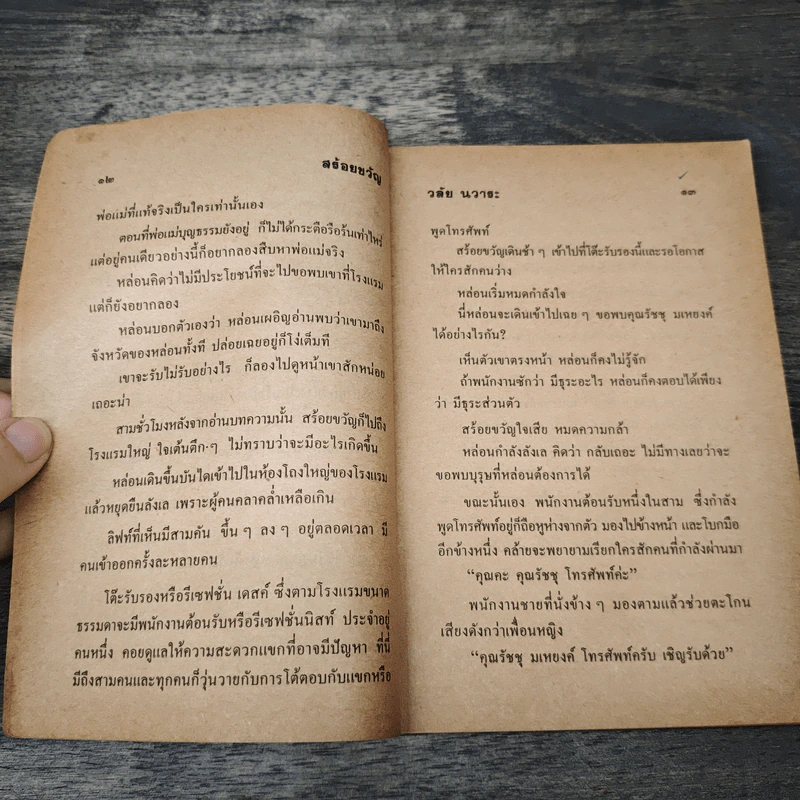 ๑๒
สร้อยขวัญ
พ่อแม่ที่แท้จริงเป็นใครเท่านั้นเอง
ตอนที่พ่อแม่บุญธรรมยังอยู่ ก็ไม่ได้กระตือรือร้นเท่าไหร่
แต่อยู่คนเดียวอย่างนี้ก็อยากลองสืบหาพ่อแม่จริง
หล่อนคิดว่าไม่มีประโยชน์ที่จะไปขอพบเขาที่โรงแรม
แต่ก็ยังอยากลอง
หล่อนบอกตัวเองว่า หล่อนเผอิญอ่านพบว่าเขามาถึง
จังหวัดของหล่อนทั้งที ปล่อยเฉยอยู่ก็โง่เต็มที
เขาจะรับไม่รับอย่างไร ก็ลองไปดูหน้าเขาสักหน่อย
เถอะน่า
สามชั่วโมงหลังจากอ่านบทความนั้น สร้อยขวัญก็ไปถึง
โรงแรมใหญ่ ใจเต้นตึก ๆ ไม่ทราบว่าจะมีอะไรเกิดขึ้น
หล่อนเดินขึ้นบันไดเข้าไปในห้องโถงใหญ่ของโรงแรม
แล้วหยุดยืนลังเล เพราะผู้คนคลาคล่ำเหลือเกิน
ลิฟท์ที่เห็นมีสามคัน ขึ้น ๆ ลง ๆ อยู่ตลอดเวลา มี
คนเข้าออกครั้งละหลายคน
โต๊ะรับรองหรือรีเซฟชั่น เดสค์ ซึ่งตามโรงแรมขนาด
ธรรมดาจะมีพนักงานต้อนรับหรือรีเซฟชั่นนิสท์ ประจำอยู่
คนหนึ่ง คอยดูแลให้ความสะดวกแขกที่อาจมีปัญหา ที่นี่
มีถึงสามคนและทุกคนก็วุ่นวายกับการโต้ตอบกับแขกหรือ
วลัย นวาระ
๑๓
พูดโทรศัพท์
สร้อยขวัญเดินช้า ๆ เข้าไปที่โต๊ะรับรองนี้และรอโอกาส
ให้ใครสักคนว่าง
หล่อนเริ่มหมดกำลังใจ
นี่หล่อนจะเดินเข้าไปเฉย ๆ ขอพบคุณรัชชุ มเหยงค์
ได้อย่างไรกัน?
เห็นตัวเขาตรงหน้า หล่อนก็คงไม่รู้จัก
ถ้าพนักงานซักว่า มีธุระอะไร หล่อนก็คงตอบได้เพียง
ว่า มีธุระส่วนตัว
สร้อยขวัญใจเสีย หมดความกล้า
หล่อนกำลังลังเล คิดว่า กลับเถอะ ไม่มีทางเลยว่าจะ
ขอพบบุรุษที่หล่อนต้องการได้
ขณะนั้นเอง พนักงานต้อนรับหนึ่งในสาม ซึ่งกำลัง
พูดโทรศัพท์อยู่ก็ถือหูห่างจากตัว มองไปข้างหน้า และโบกมือ
อีกข้างหนึ่ง คล้ายจะพยายามเรียกใครสักคนที่กำลังผ่านมา
“คุณคะ คุณรัชชุ โทรศัพท์ค่ะ”
พนักงานชายที่นั่งข้าง ๆ มองตามแล้วช่วยตะโกน
เสียงดังกว่าเพื่อนหญิง
“คุณรัชชุ มเหยงค์ โทรศัพท์ครับ เชิญรับด้วย”